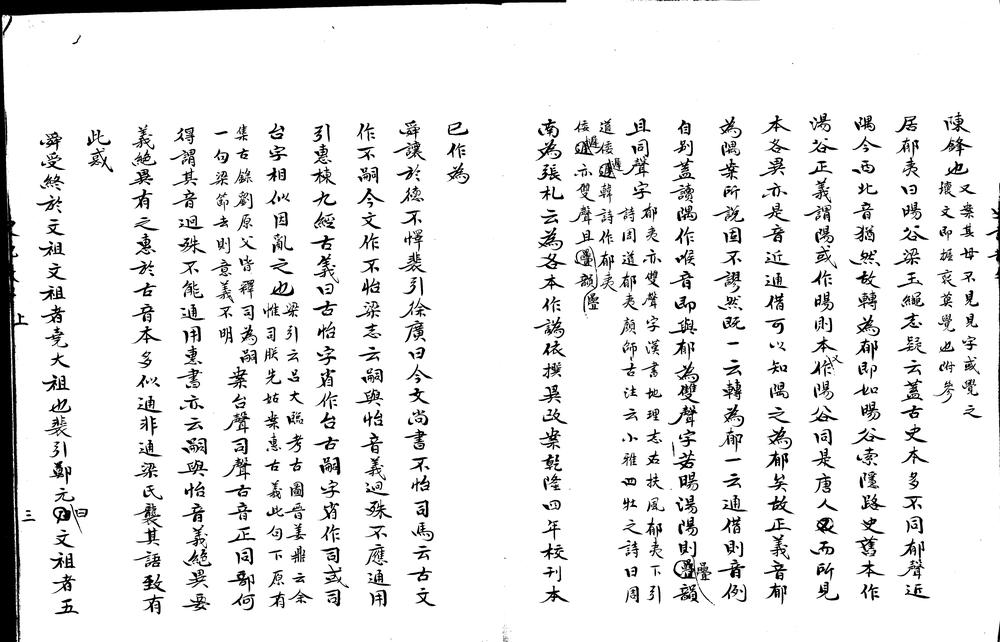 陳鋒也又案其母不見見字或覺之
壞文即握裒莫覺也附參
居郁夷曰暘谷梁玉繩志疑云蓋古史本多不同郁聲近
隅今西北音猶然故轉為郁即如暘谷索隱路史舊本作
湯谷正義謂陽或作暘則本又作陽谷同是唐人而所見
本各異亦是音近通借可以知隅之為郁矣故正義音郁
為隅案所說固不謬然既一云轉為郁一云通借則音例
自別蓋讀隅作喉音即與郁為雙聲字若暘湯陽則疊韻
且同聲字郁夷亦雙聲字漢書地理志右扶風郁夷下引
詩周道郁夷顏師古注云小雅四牡之詩曰周
道倭遲韓詩作郁夷
倭遲亦雙聲且疊韻
南為張札云為各本作譌依撰異改案乾隆四年校刊本
已作為
舜讓於德不懌裴引徐廣曰今文尚書不怡司馬云古文
作不嗣今文作不怡梁志云嗣與怡音義迥殊不應通用
引惠棟九經古義曰古怡字省作台古嗣字省作司或司
台字相似因亂之也梁引云呂大臨考古圖晉姜鼎云余
惟司朕先姑案惠古義此句下原有
集古錄劉原父皆釋司為嗣
一句梁節去則意義不明
案台聲司聲古音正同鄂何
得謂其音迥殊不能通用惠書亦云嗣與怡音義絕異要
義絕異有之惠於古音本多似通非通梁氏襲其語致有
此惑
舜受終於文祖文祖者堯大祖也裴引鄭元曰文祖者五
上
三